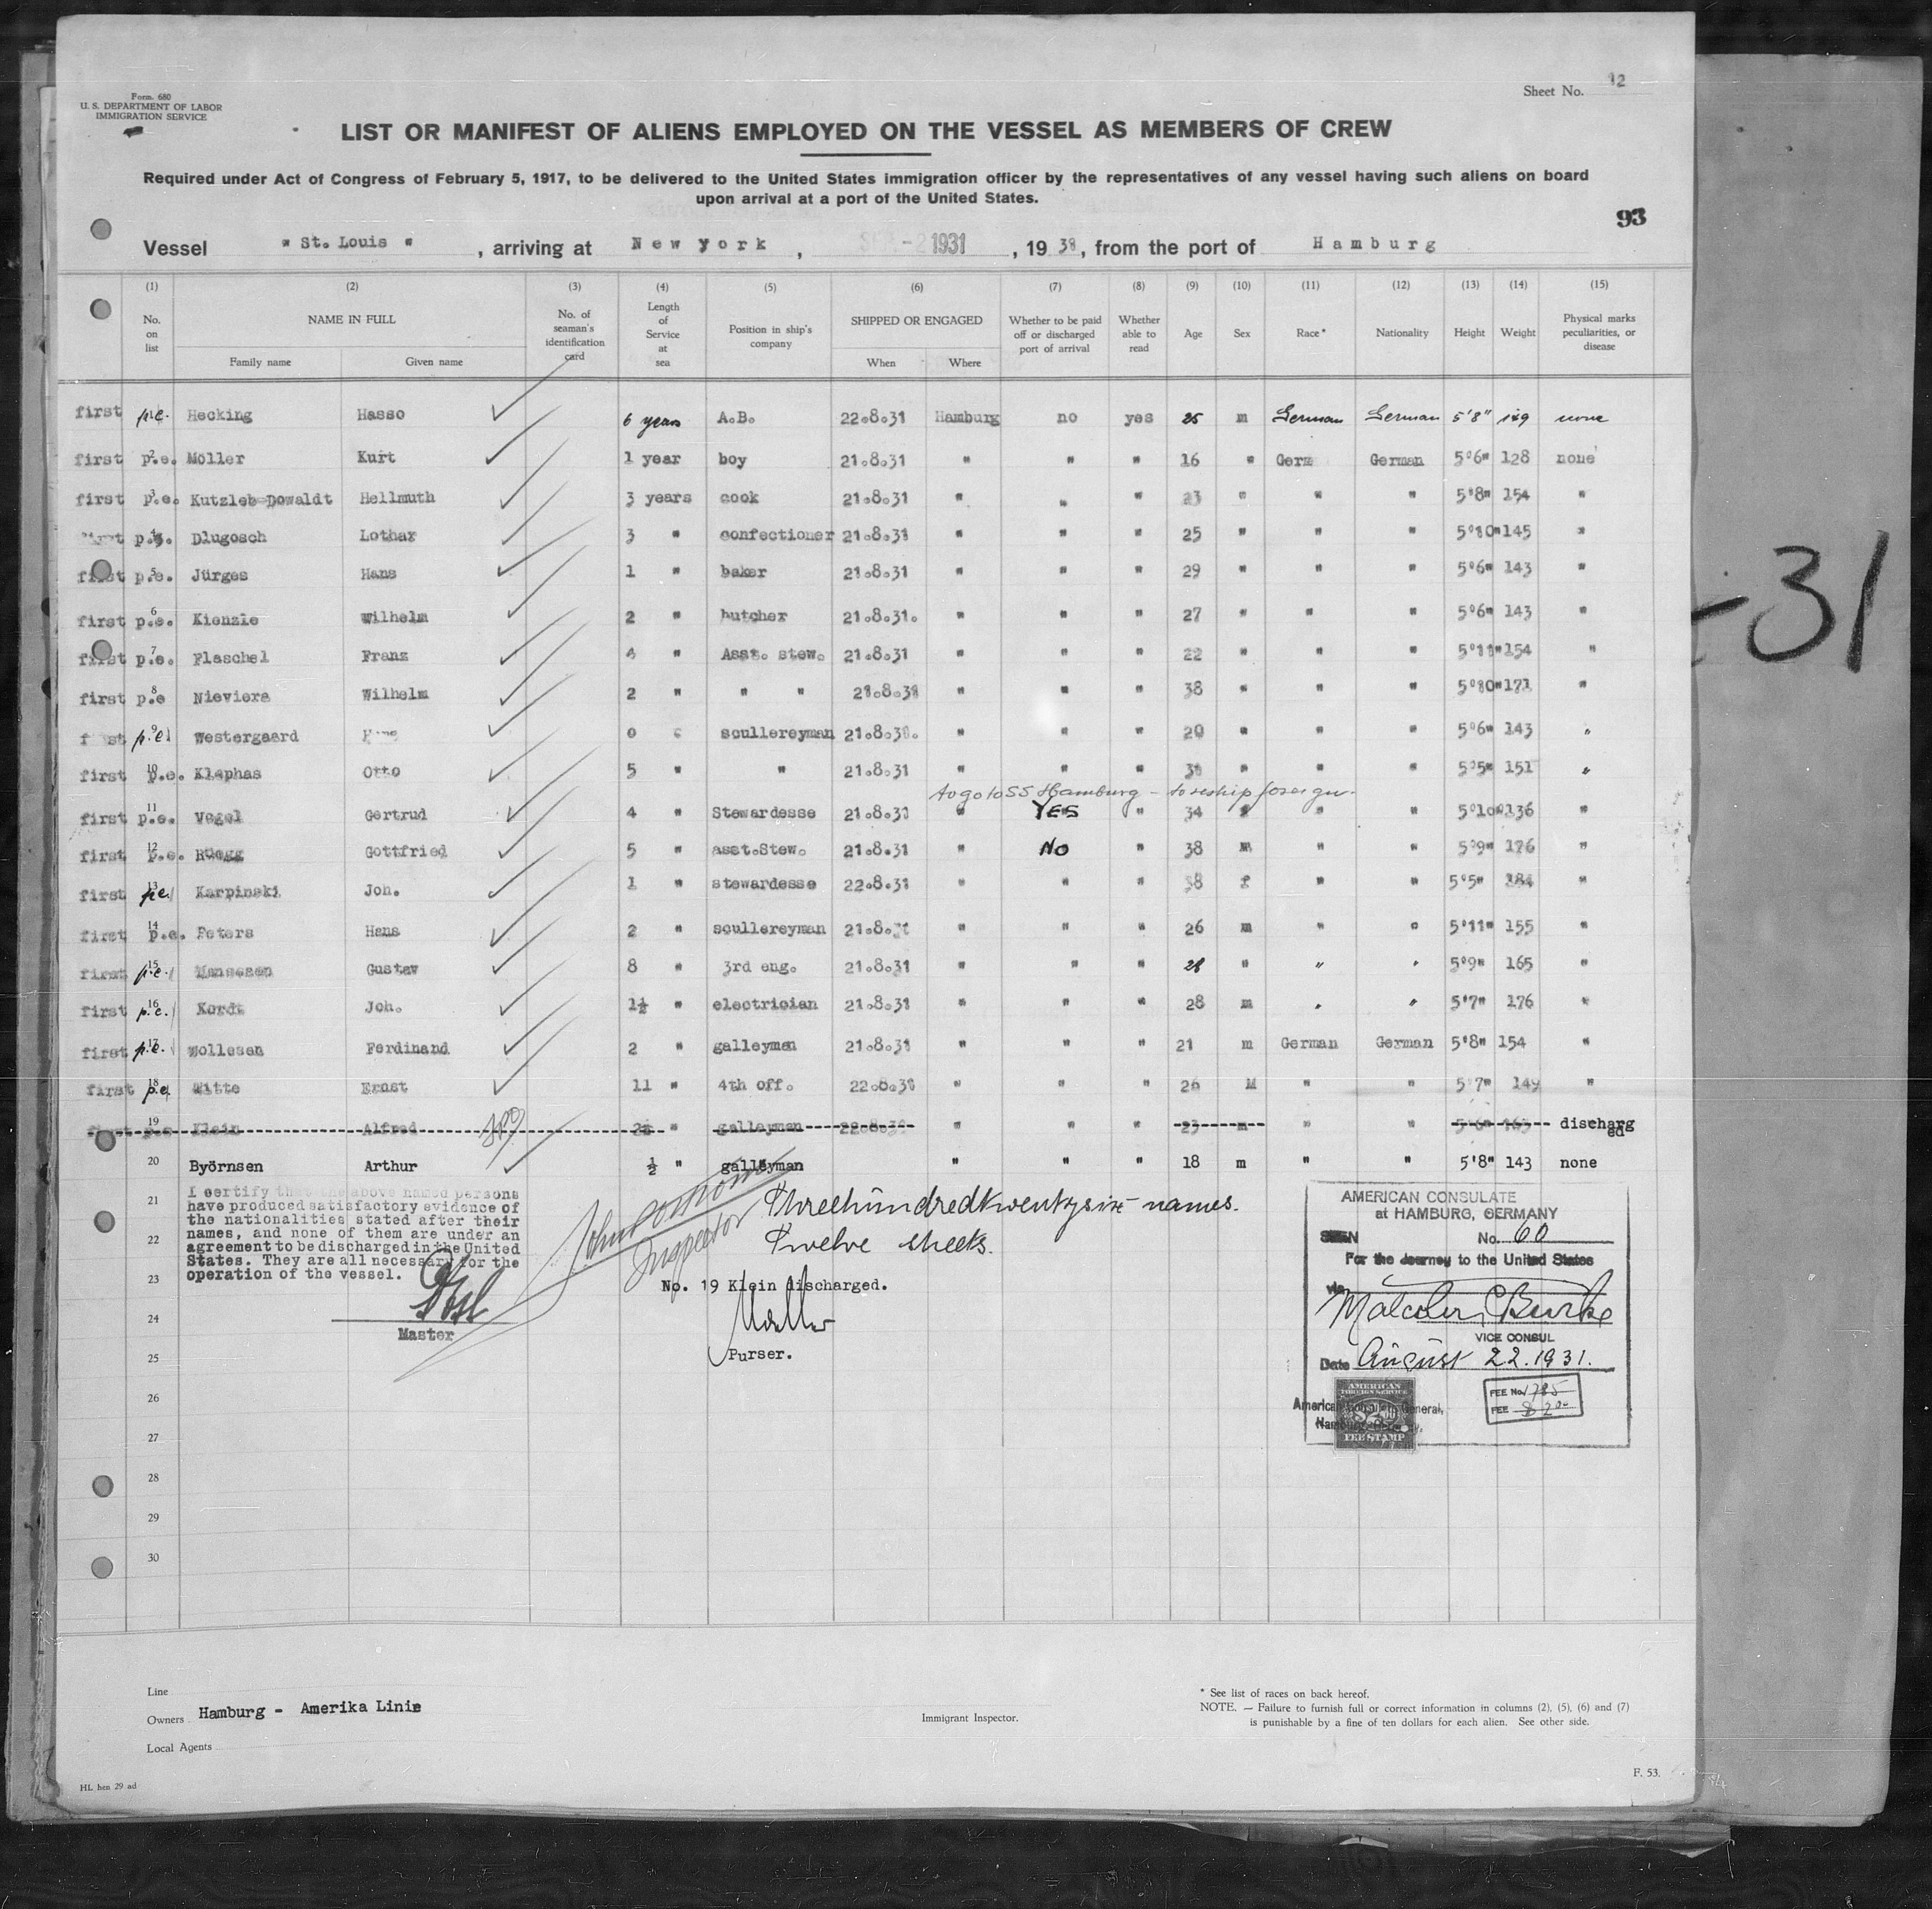 Form. 680
U. S. DEPARTMENT OF LABOR
IMMIGRATION SERVICE
Sheet No. 12
LIST OR MANIFEST OF ALIENS EMPLOYED ON THE VESSEL AS MEMBERS OF CREW
Required under Act of Congress of February 5, 1917, to be delivered to the United States immigration officer by the representatives of any vessel having such aliens on board
upon arrival at a port of the United States.
93
Vessel " St. Louis " , arriving at New York , -2 1931 , 19 31, from the port of Hamburg
(1) (2) (3) (4) (5) (6) (7) (8) (9) (10) (11) (12) (13) (14) (15)
No. on list NAME IN FULL Family name Given name No. of seaman's identification card Length of Service at sea Position in ship's company SHIPPED OR ENGAGED When Where Whether to be paid off or discharged port of arrival Whether able to read Age Sex Race* Nationality Height Weight Physical marks peculiarities, or disease
first p.e. Hecking Hasso 6 years A.B. 22.8.31 Hamburg no yes 25 m German German 5'8" 149 none
first 2 p.e. Möller Kurt 1 year boy 21.8.31 " " " 16 " Germ German 5'6" 128 none
first 3 p.e. Kutzleb-Dowaldt Hellmuth 3 years cook 21.8.31 " " " 23 " " " 5'8" 154 "
first 4 p.e. Dlugosch Lothar 3 " confectioner 21.8.31 " " " 25 " " " 5'10" 145 "
first 5 p.e. Jürges Hans 1 " baker 21.8.31 " " " 29 " " " 5'6" 143 "
first 6 p.e. Kienzle Wilhelm 2 " butcher 21.8.31. " " " 27 " " " 5'6" 143 "
first 7 p.e. Flaschel Franz 4 " Asst. stew. 21.8.31 " " " 22 " " " 5'11" 154 "
first 8 p.e Nieviera Wilhelm 2 " " " 21.8.31 " " " 38 " " " 5'10" 171 "
first 9 p.e. Westergaard 0 " scullereyman 21.8.31. " " " 20 " " " 5'6" 143 "
first 10 p.e. Klephas Otto 5 " " 21.8.31 " " " 31 " " " 5'5" 151 "
to go to SS Hamburg - to reship foreign
first 11 p.e. Vogel Gertrud 4 " Stewardesse 21.8.31 " YES " 34 f " " 5'10" 136 "
first 12 p.e. Rüegg Gottfried 5 " asst.Stew. 21.8.31 " NO " 38 m " " 5'9" 176 "
first 13 p.e. Karpinski Joh. 1 " stewardesse 22.8.31 " " " 38 f " " 5'5" 184 "
first 14 p.e. Peters Hans 2 " scullereyman 21.8.31 " " " 26 m " " 5'11" 155 "
first 15 p.e. Gustav 8 " 3rd eng. 21.8.31 " " " 28 " " " 5'9" 165 "
first 16 p.e. Kordt Joh. 1½ " electrician 21.8.31 " " " 28 m " " 5'7" 176 "
first 17 p.e. Wollesen Ferdinand 2 " galleyman 21.8.31 " " " 21 m German German 5'8" 154 "
first 18 p.e. Witte Ernst 11 " 4th off. 22.8.31 " " " 26 M " " 5'7" 149 "
first 19 p.e. Klein Alfred 2½ " galleyman 22.8.31 " " " 23 m " " 5'6" 163 discharged
20 Byörnsen Arthur ½ " galleyman " " " 18 m " " 5'8" 143 none
21
22
23
24
25
26
27
28
29
30
I certify that the above named persons
have produced satisfactory evidence of
the nationalities stated after their
names, and none of them are under an
agreement to be discharged in the United
States. They are all necessary for the
operation of the vessel.
Master
Inspector
Threehundredtwentysix names.
Twelve sheets.
No. 19 Klein discharged.
Purser.
AMERICAN CONSULATE
at HAMBURG, GERMANY
SEEN No. 60
For the Journey to the United States
via
Malcolm C Burke
VICE CONSUL
Date August 22. 1931.
American Consulate General,
Hamburg, Germany.
AMERICAN
FOREIGN SERVICE
FEE STAMP
FEE No. 1785
FEE $ 2.00
-31
Line
Owners Hamburg - Amerika Linie
Local Agents
Immigrant Inspector.
* See list of races on back hereof.
NOTE. — Failure to furnish full or correct information in columns (2), (5), (6) and (7)
is punishable by a fine of ten dollars for each alien. See other side.
HL hen 29 ad
F. 53.